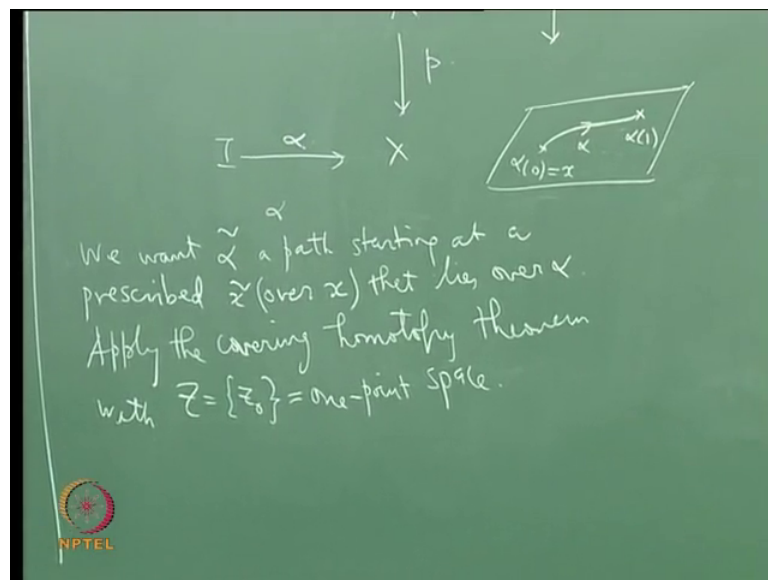 p.
I α X
α(0)=x α α(1)
α
We want α̃ a path starting at a
prescribed x̃ (over x) that lies over α.
Apply the covering homotopy theorem
with Z = {z₀} = one-point space.
NPTEL